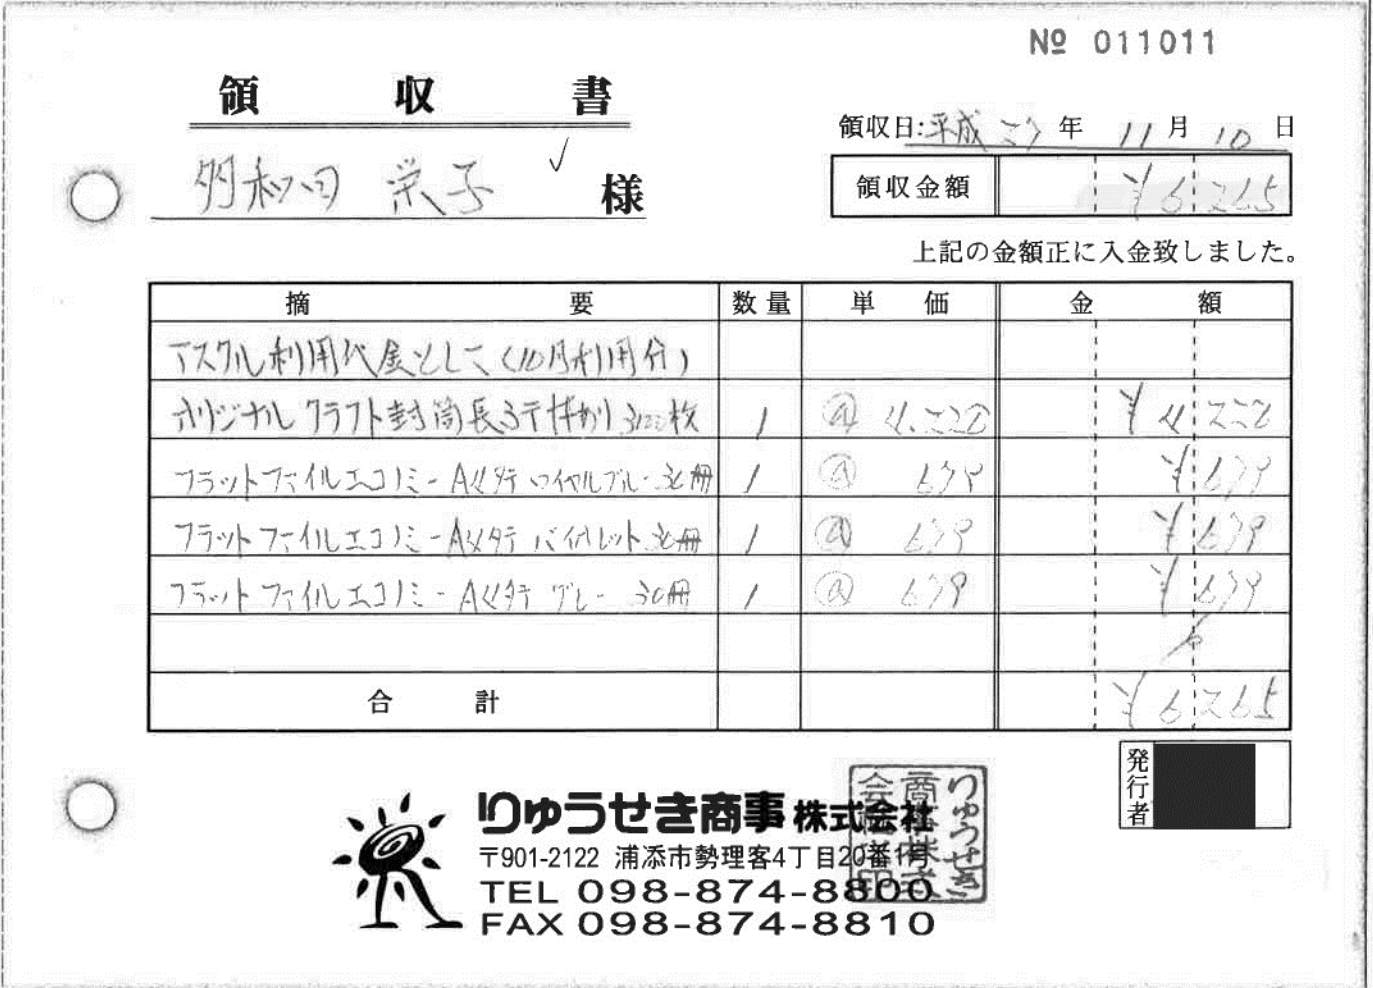 № 011011
領収書
領収日:平成27年11月10日
多和田 栄子 様
領収金額 ¥6265
上記の金額正に入金致しました。
摘要 数量 単価 金額
アスクル利用代金として(10月利用分)
オリジナルクラフト封筒長3〒枠あり 枚 1 @ 4,228 ¥4228
フラットファイルエコノミーA4タテ ロイヤルブルー 30冊 1 @ 679 ¥679
フラットファイルエコノミーA4タテ バイオレット 30冊 1 @ 679 ¥679
フラットファイルエコノミーA4タテ グレー 30冊 1 @ 679 ¥679
合計 ¥6265
発行者
りゅうせき商事株式会社
〒901-2122 浦添市勢理客4丁目20番1号
TEL 098-874-8800
FAX 098-874-8810